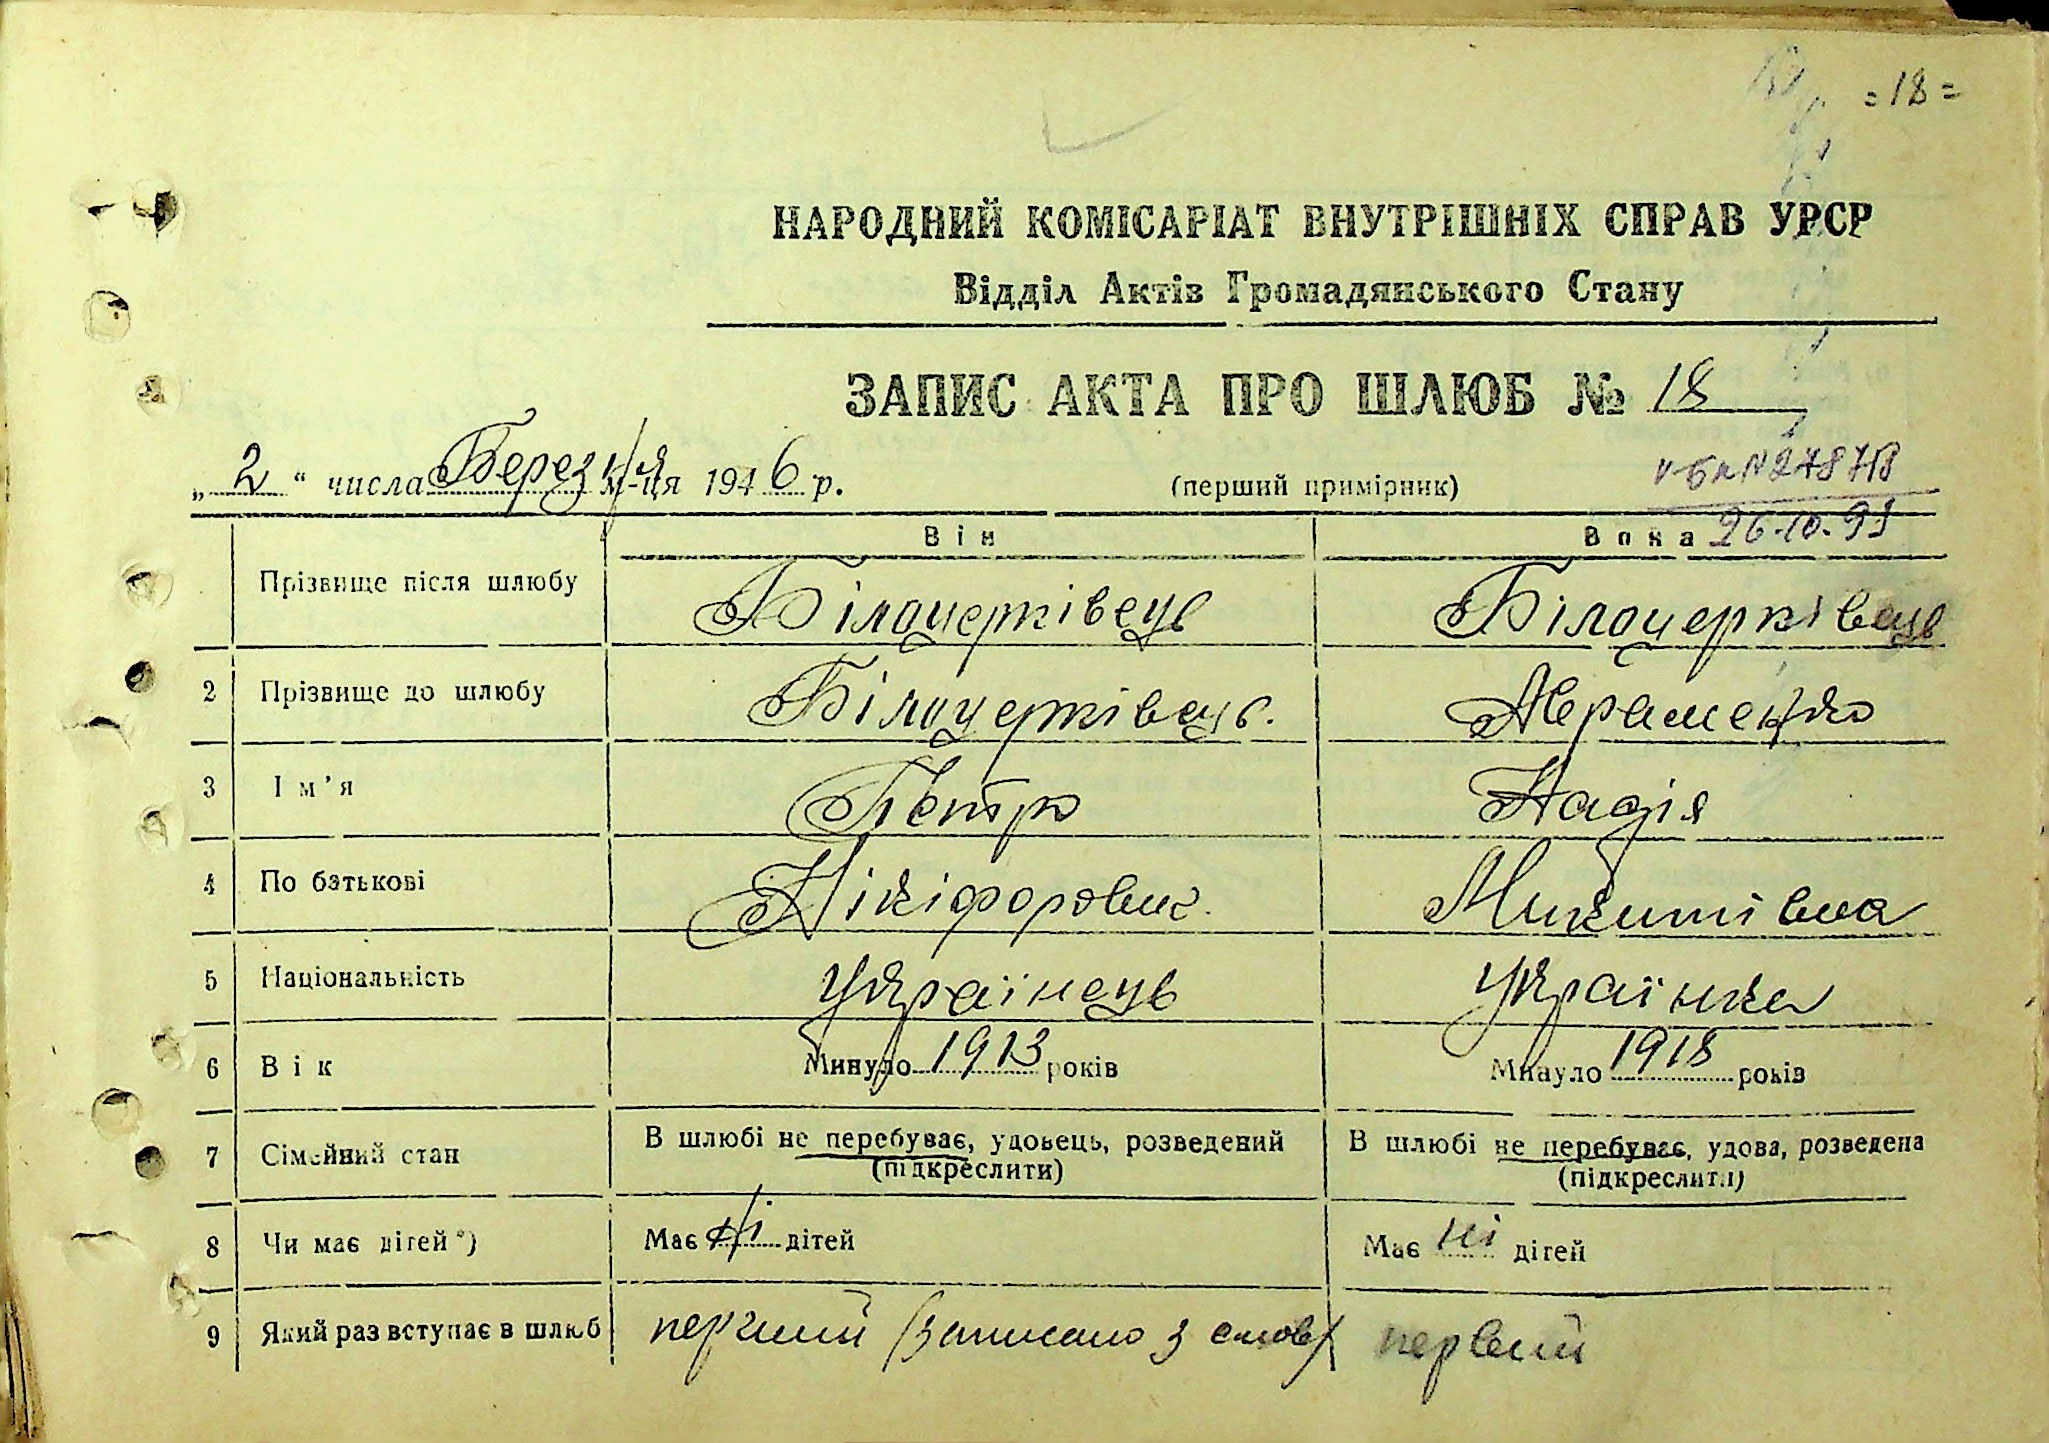 = 18 =
НАРОДНИЙ КОМІСАРІАТ ВНУТРІШНІХ СПРАВ УРСР
Відділ Актів Громадянського Стану
ЗАПИС АКТА ПРО ШЛЮБ № 18
„ 2 “ числа Березня м-ця 1946 р. (перший примірник)
26.10.93
Він Вона
Прізвище після шлюбу Білоцерківець Білоцерківець
2 Прізвище до шлюбу Білоцерківець. Авраменко
3 Ім'я Петро Надія
4 По батькові Нікіфорович. Микитівна
5 Національність Українець Українка
6 Вік Минуло 1913 років Минуло 1918 років
7 Сімейний стан В шлюбі не перебуває, удовець, розведений В шлюбі не перебуває, удова, розведена
(підкреслити) (підкреслити)
8 Чи має дітей*) Має ні дітей Має ні дітей
9 Який раз вступає в шлюб перший (записано з слов) первий